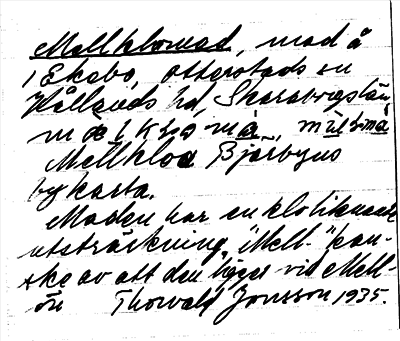 Mellklomad, mad å
i Ekebo, Otterstads sn
Kållands hd, Skaraborgs län,
Mellkloa Bjärbyns
bykarta.
Maden har en kloliknande
utsträckning, "Mell-" kan-
ske av att den ligger vid Mell-
ön Thorvald Jonsson 1935.